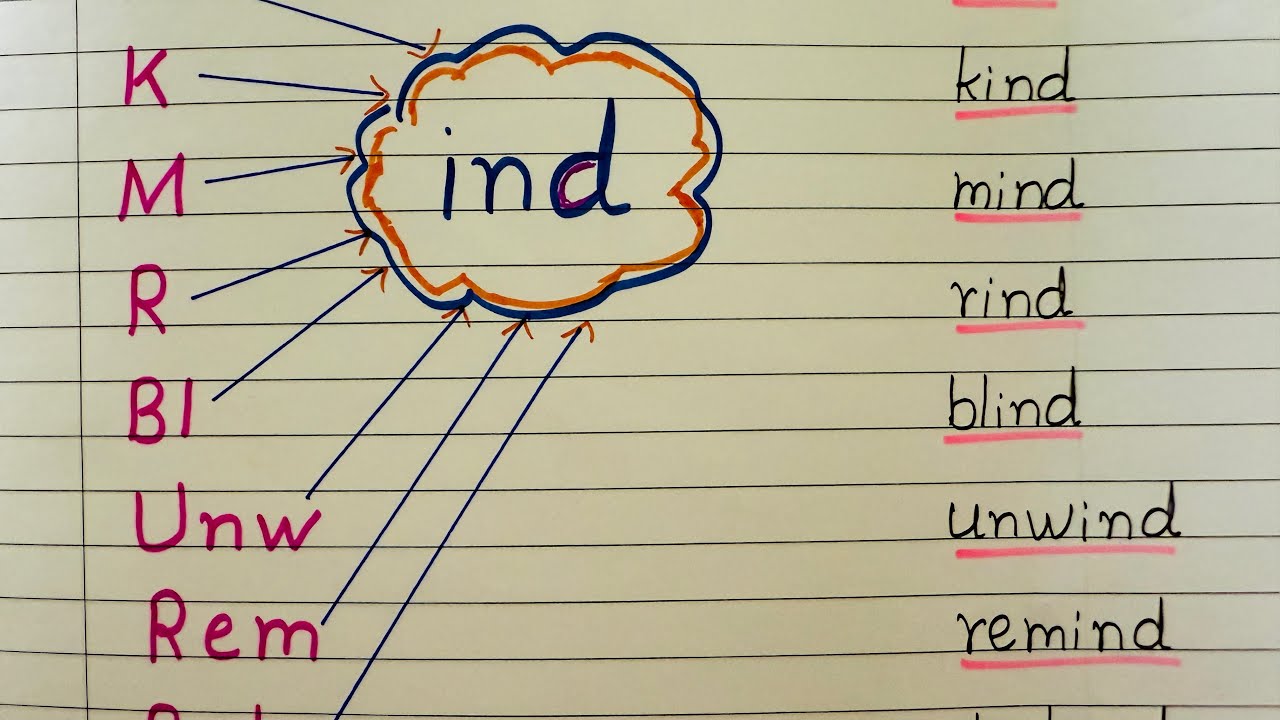 K kind
ind
M mind
R rind
Bl blind
Unw unwind
Rem remind